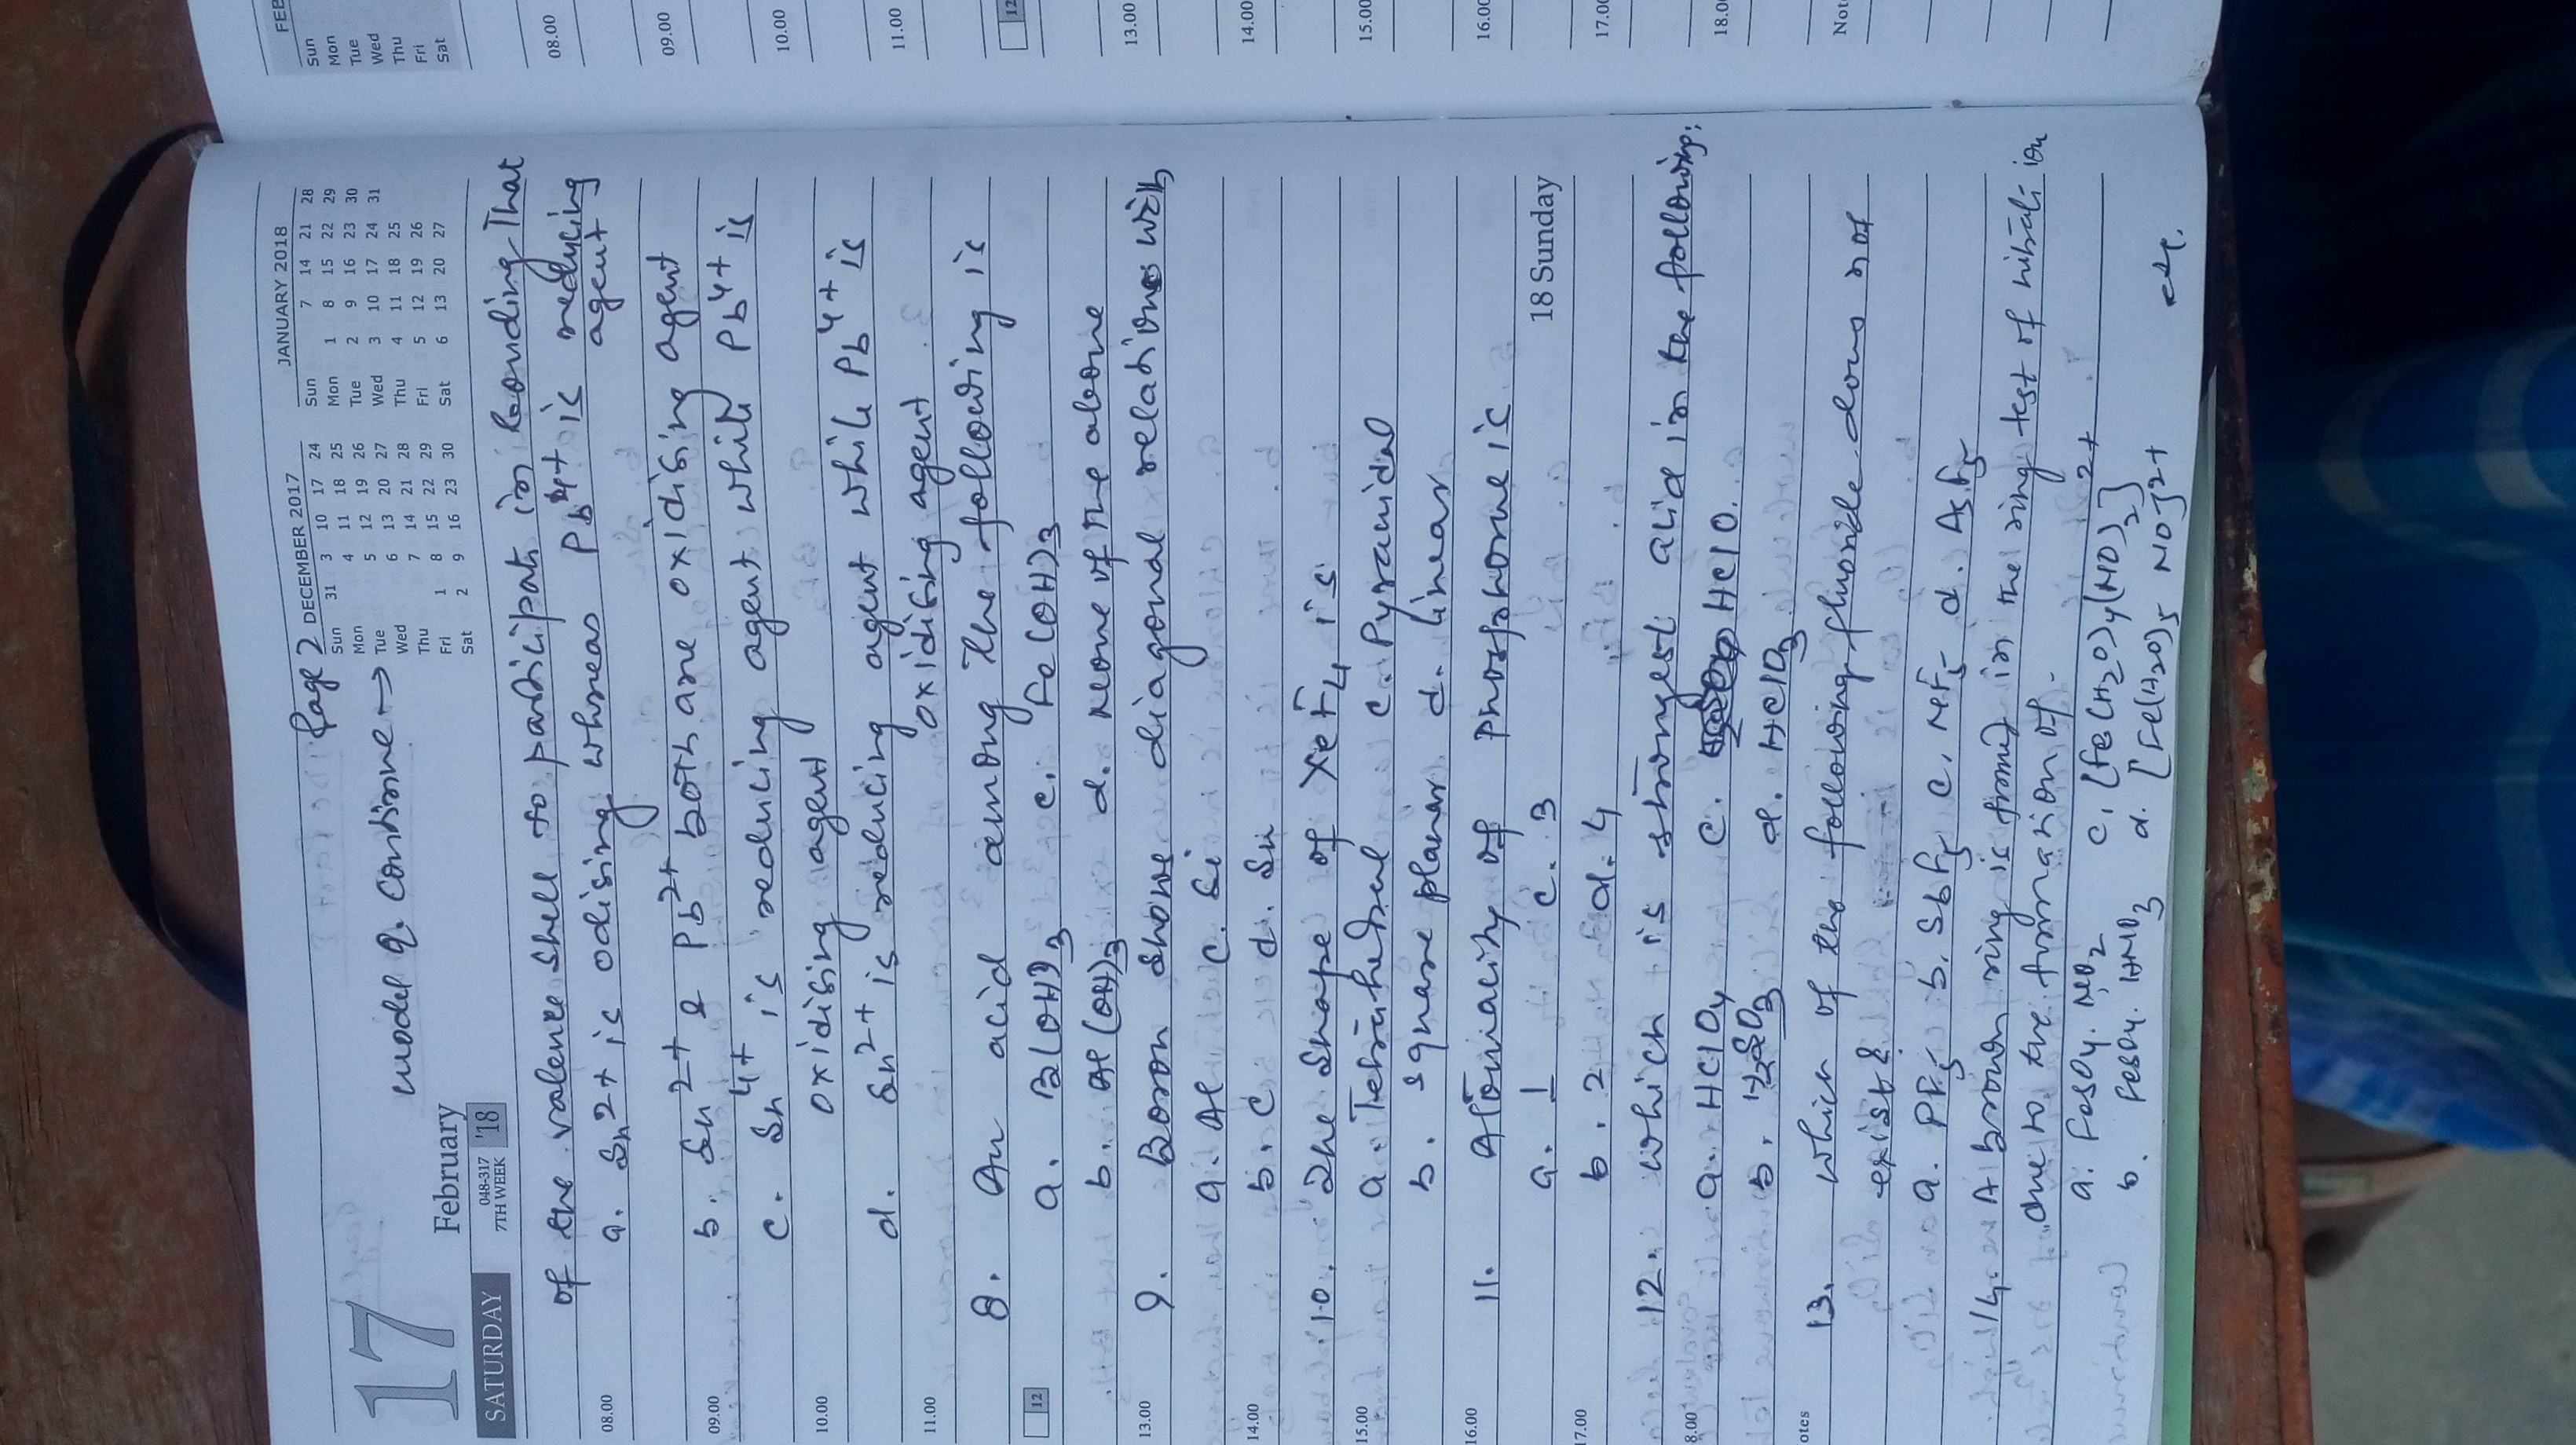 Page 2
17
February
SATURDAY
048-317
7TH WEEK
'18
DECEMBER 2017
Sun 31 3 10 17 24
Mon 4 11 18 25
Tue 5 12 19 26
Wed 6 13 20 27
Thu 7 14 21 28
Fri 1 8 15 22 29
Sat 2 9 16 23 30
JANUARY 2018
Sun 7 14 21 28
Mon 1 8 15 22 29
Tue 2 9 16 23 30
Wed 3 10 17 24 31
Thu 4 11 18 25
Fri 5 12 19 26
Sat 6 13 20 27
model q. Continue →
of the valence shell to participate in bonding That
08.00
a. Sn2+ is odising whereas Pb4+ is reducing
agent
09.00
b. Sn2+ & Pb2+ both are oxidising agent
c. Sn4+ is reducing agent while Pb4+ is
10.00
oxidising agent
d. Sn2+ is reducing agent while Pb4+ is
11.00
oxidising agent
8. An acid among the following is
12
a. B(OH)3 c. Fe(OH)3
b. Al(OH)3 d. None of the above
13.00
9. Boron shows diagonal relations with
a. Al c. Si
14.00
b. C d. Sn
10. The shape of XeF4 is
15.00
a. Tetrahedral c. Pyramidal
b. square planar d. linear
16.00
11. Atomiacity of phosphorne is
a. 1 c. 3
18 Sunday
17.00
b. 2 d. 4
12. which is strongest acid in the following:
8.00
a. HClO4 c. HClO.
b. H2SO3 d. HClO3
otes
13. which of the following fluoride does not
exist?
a. PF5 b. SbF5 c. NF5 d. AsF5
14. A brown ring is fromed in the ring test of nitrate ion
due to the formation of.
a. FeSO4. NO2 c. [Fe(H2O)4(NO)2]2+
b. FeSO4. HNO3 d. [Fe(H2O)5 NO]2+
FEB
Sun
Mon
Tue
Wed
Thu
Fri
Sat
08.00
09.00
10.00
11.00
12
13.00
14.00
15.00
16.00
17.00
18.0
Note